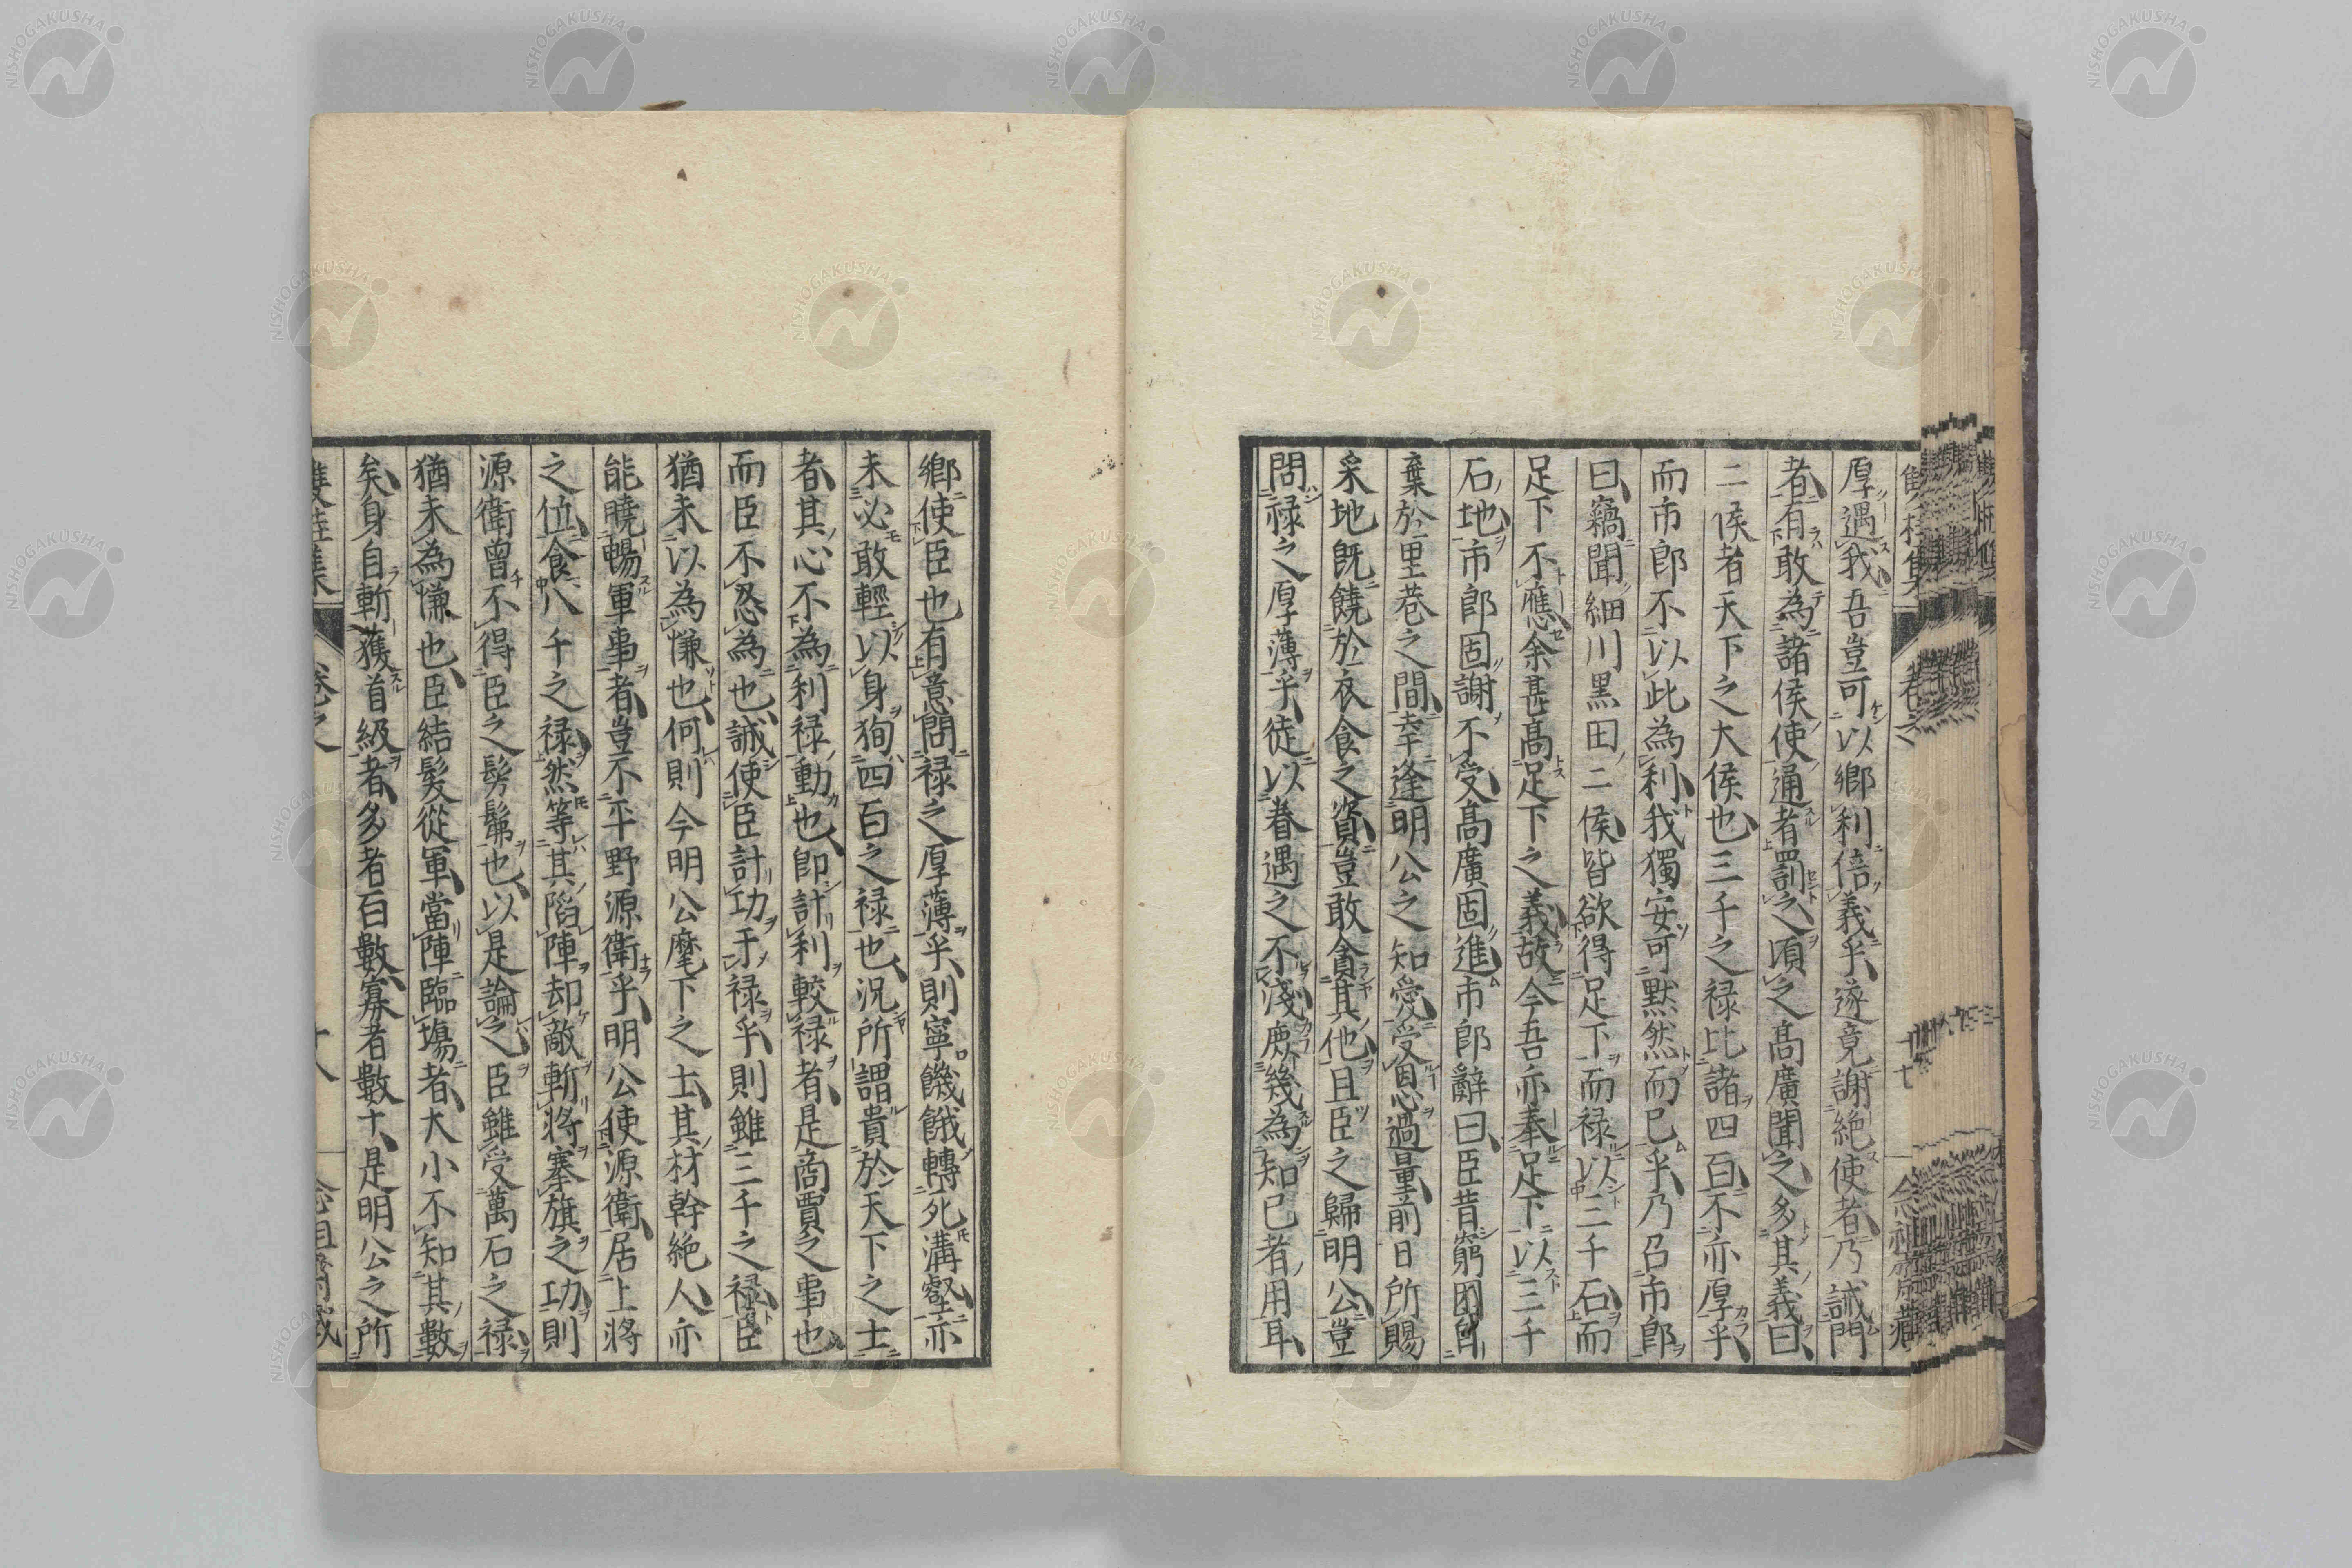 厚遇我吾豈可以鄉利倍義乎遂竟謝絕使者乃誡門
者有敢為諸侯使通者罰之頃之高廣聞之多其義曰
二侯者天下之大侯也三千之祿比諸四百不亦厚乎
而市郎不以此為利我獨安可默然而已乎乃召市郎
曰竊聞細川黑田二侯皆欲得足下而祿以三千石而
足下不應余甚高足下之義故今吾亦奉足下以三千
石地市郎固謝不受高廣固進市郎辭曰臣昔窮困自
棄於里巷之間幸逢明公之知愛受恩過量前日所賜
采地既饒於衣食之資豈敢貪其他且臣之歸明公豈
問祿之厚薄乎徒以眷遇之不淺庶幾為知己者用耳
鄉使臣也有意問祿之厚薄乎則寧饑餓轉死溝壑亦
未必敢輕以身狥四百之祿也況所謂貴於天下之士
者其心不為利祿動也即計利較祿者是商賈之事也
而臣不忍為也誠使臣計功于祿乎則雖三千之祿臣
猶未以為慊也何則今明公麾下之士其材幹絕人亦
能曉暢軍事者豈不平野源衛乎明公使源衛居上將
之位食八千之祿然等其陷陣却敵斬將搴旗之功則
源衛曾不得臣之髣髴也以是論之臣雖受萬石之祿
猶未為慊也臣結髮從軍當陣臨場者大小不知其數
矣身自斬獲首級者多者百數寡者數十是明公之所